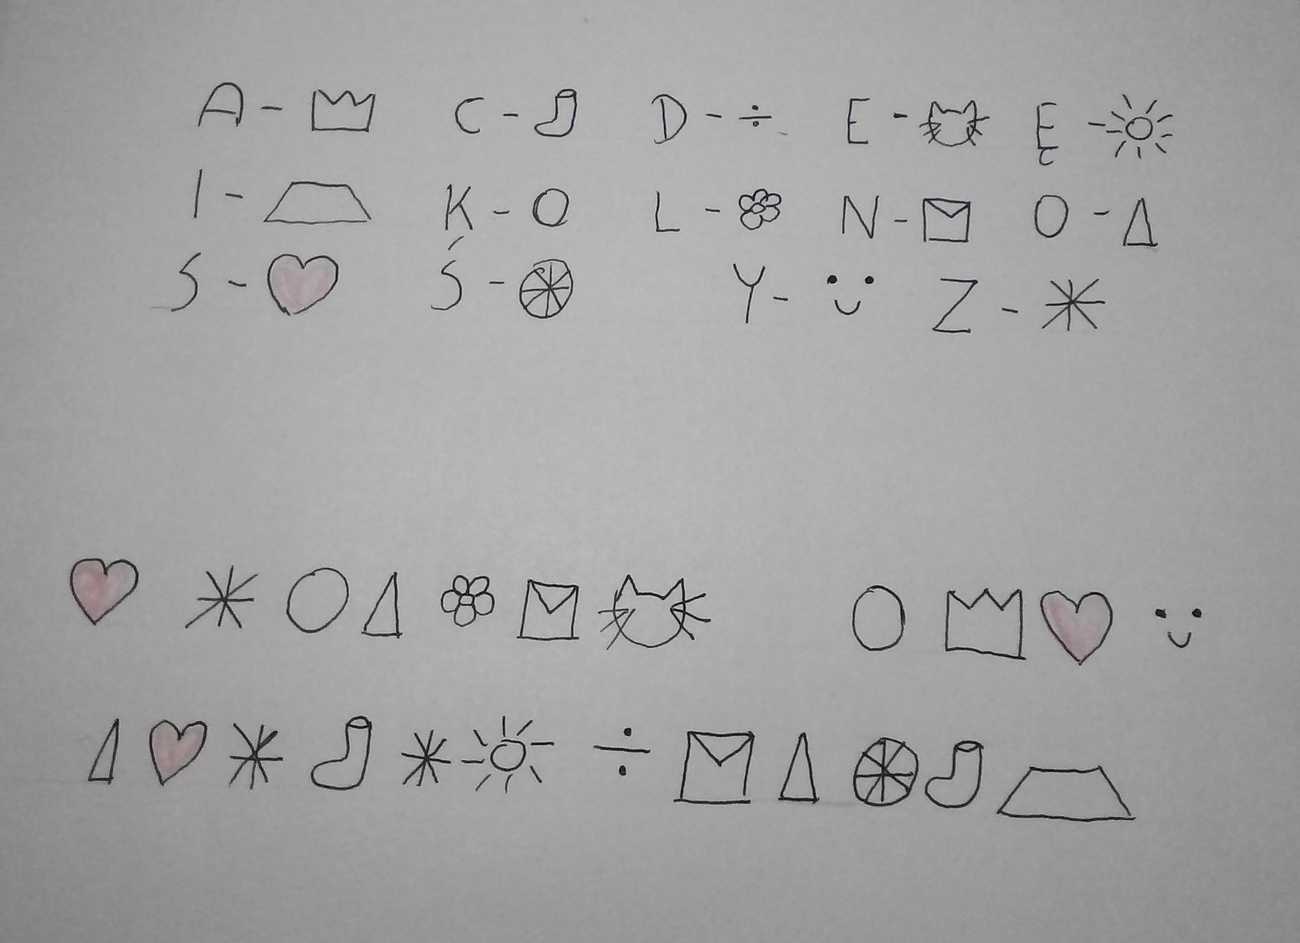 A - C - D - E - Ę -
I - K - L - N - O -
S - Ś - Y - Z -